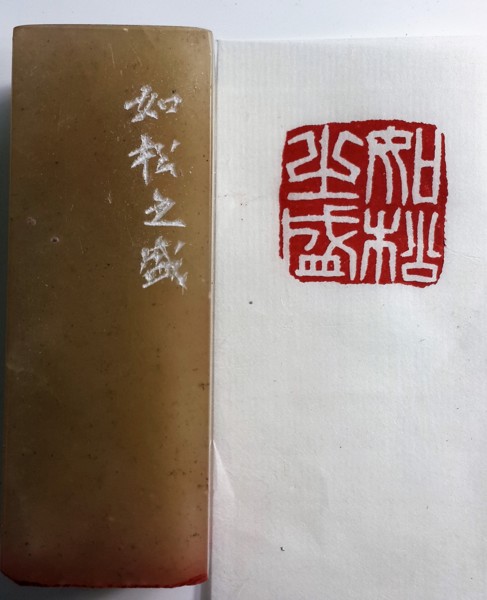 如松之盛
如松
之盛